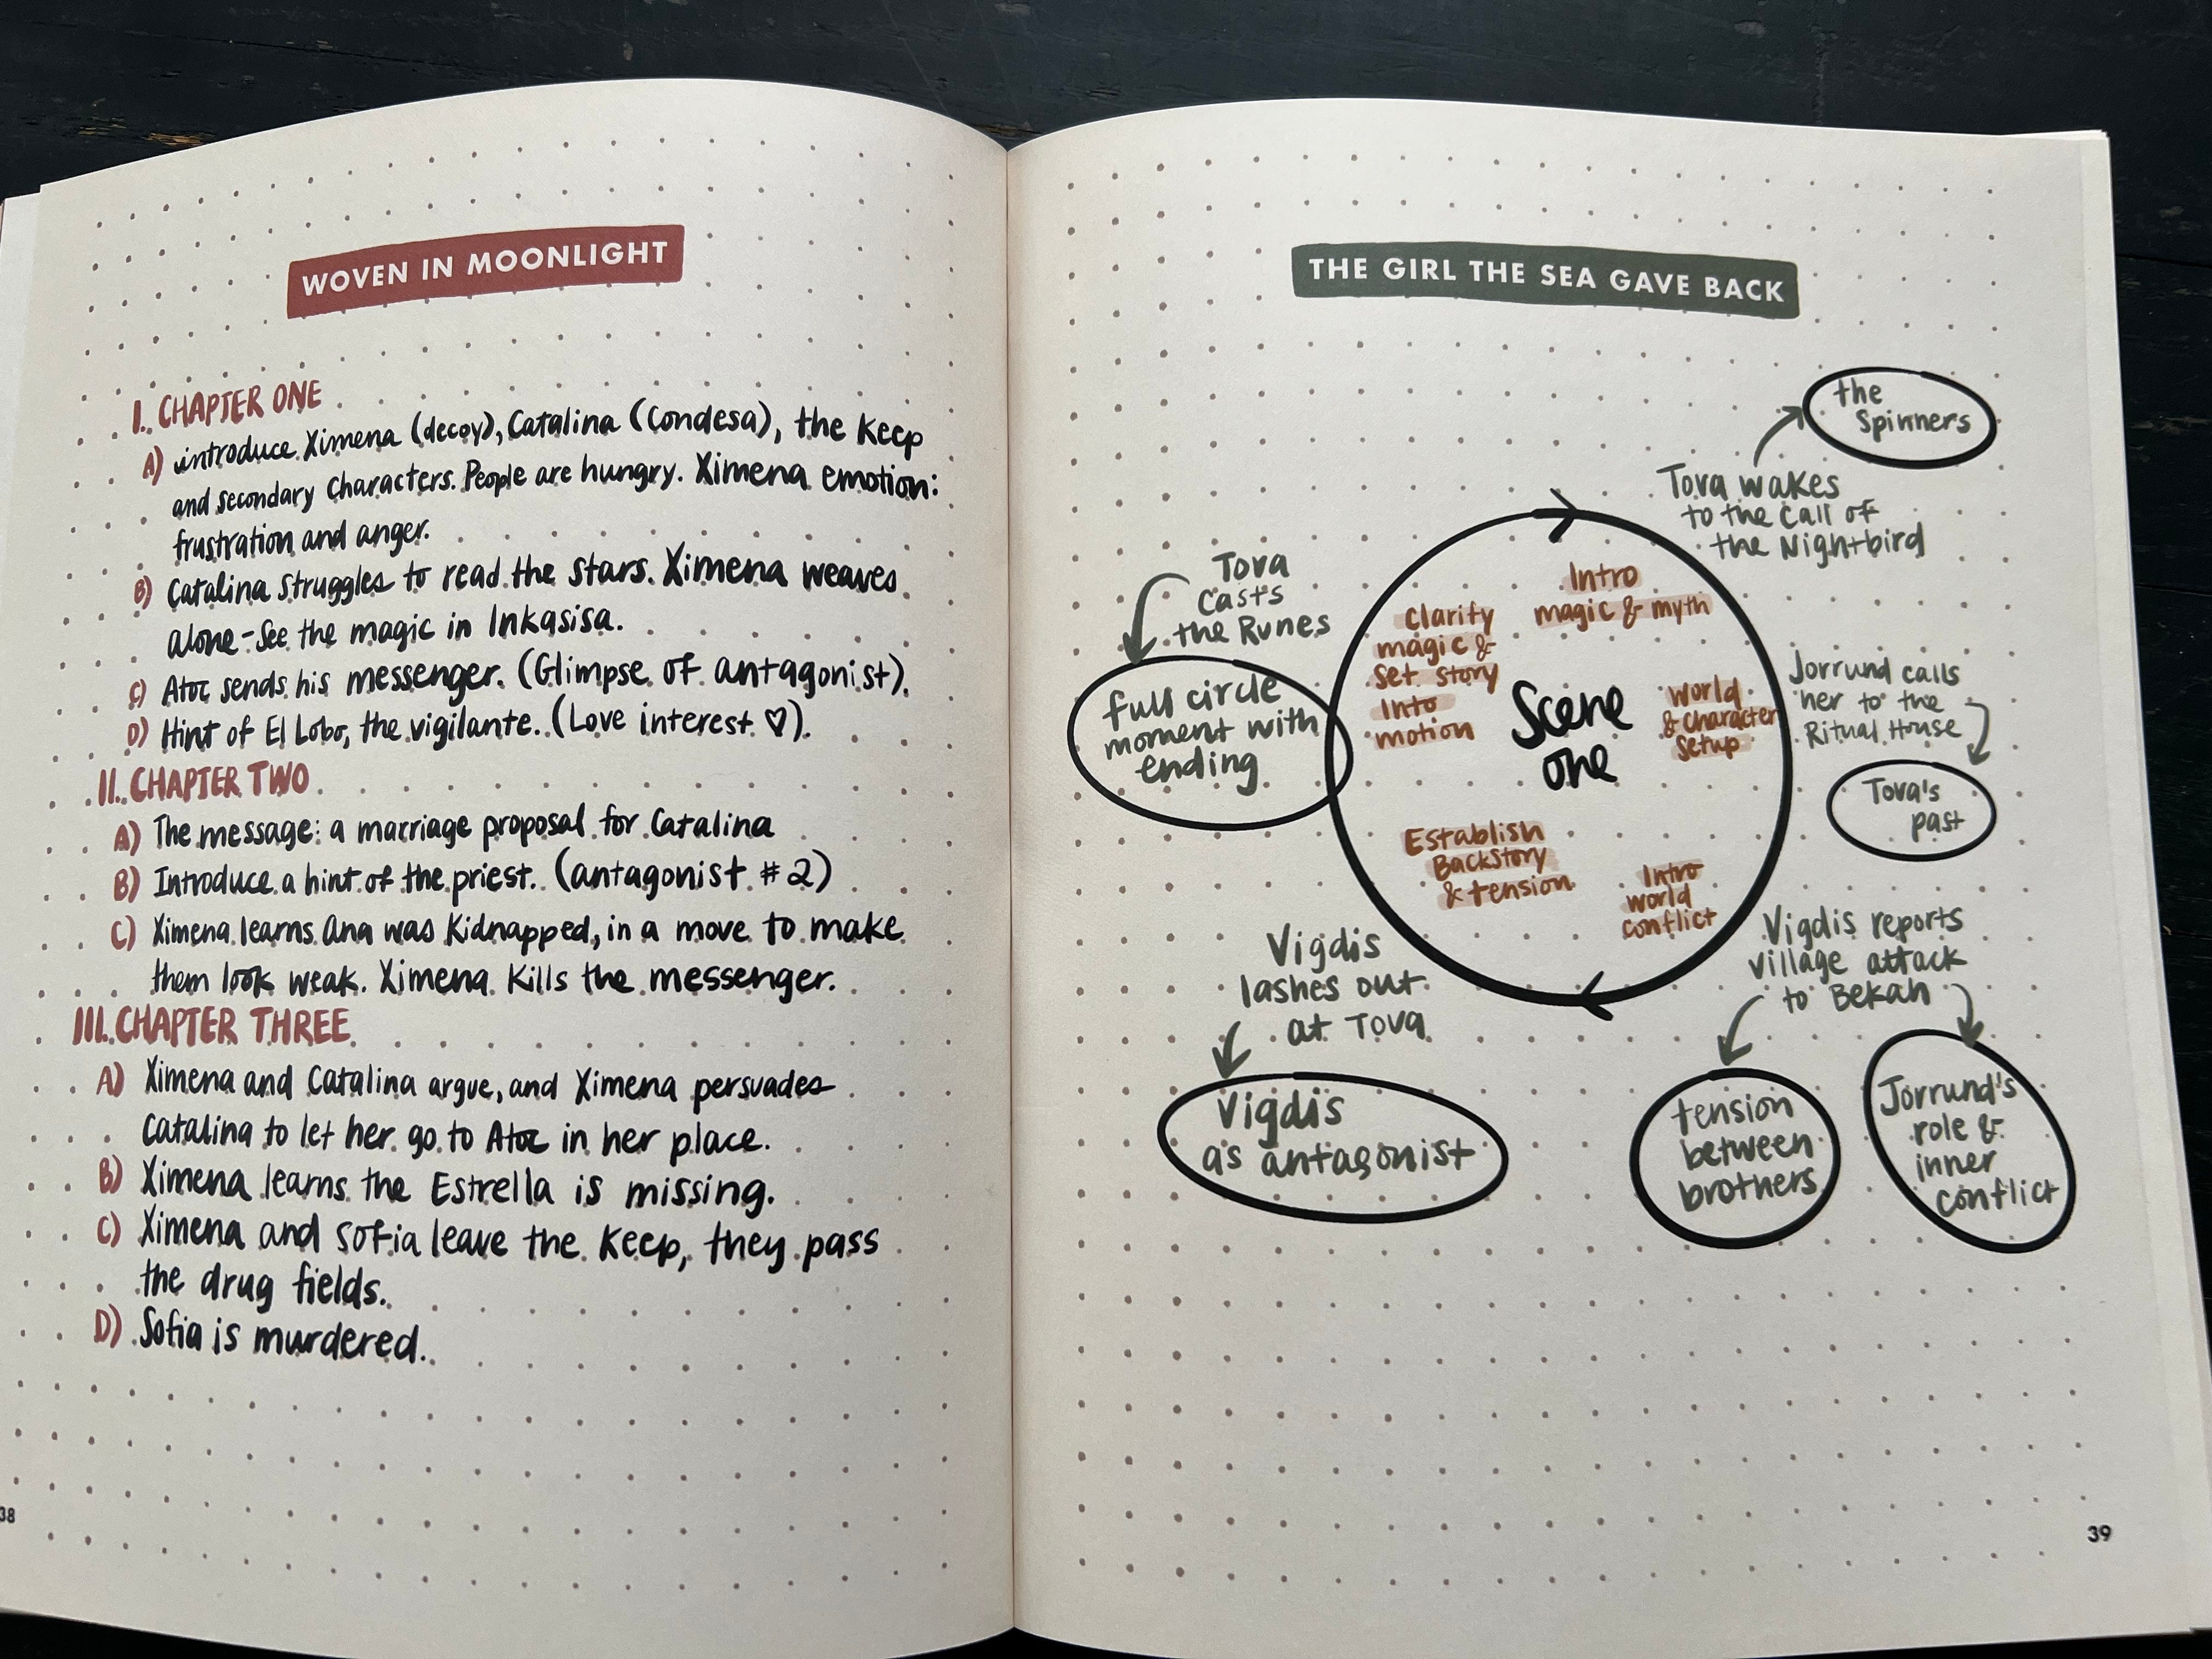 WOVEN IN MOONLIGHT
I. CHAPTER ONE
A) introduce Ximena (decoy), Catalina (Condesa), the Keep
and secondary characters. People are hungry. Ximena emotion:
frustration and anger.
B) Catalina struggles to read the stars. Ximena weaves
alone - See the magic in Inkasisa.
C) Atoc sends his messenger. (Glimpse of antagonist).
D) Hint of El Lobo, the vigilante. (Love interest ♡).
II. CHAPTER TWO
A) The message: a marriage proposal for Catalina
B) Introduce a hint of the priest. (antagonist #2)
C) Ximena learns Ana was Kidnapped, in a move to make
them look weak. Ximena Kills the messenger.
III. CHAPTER THREE
A) Ximena and Catalina argue, and Ximena persuades
Catalina to let her go to Atoc in her place.
B) Ximena learns the Estrella is missing.
C) Ximena and Sofia leave the Keep, they pass
the drug fields.
D) Sofia is murdered.
38
THE GIRL THE SEA GAVE BACK
the
Spinners
Tova wakes
to the call of
the Nightbird
Intro
magic & myth
Jorrund calls
her to the
Ritual House
World
& character
Setup
Tova's
past
Vigdis reports
village attack
to Bekan
Intro
world
conflict
tension
between
brothers
Jorrund's
role &
inner
conflict
Vigdis
lashes out
at Tova
Establish
Backstory
& tension
Vigdis
as antagonist
Tova
Casts
the Runes
Clarify
magic &
Set story
Into
motion
full circle
moment with
ending
Scene
one
39